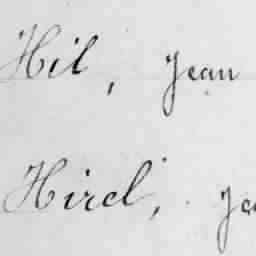 Hil, Jean
Hirel, Je